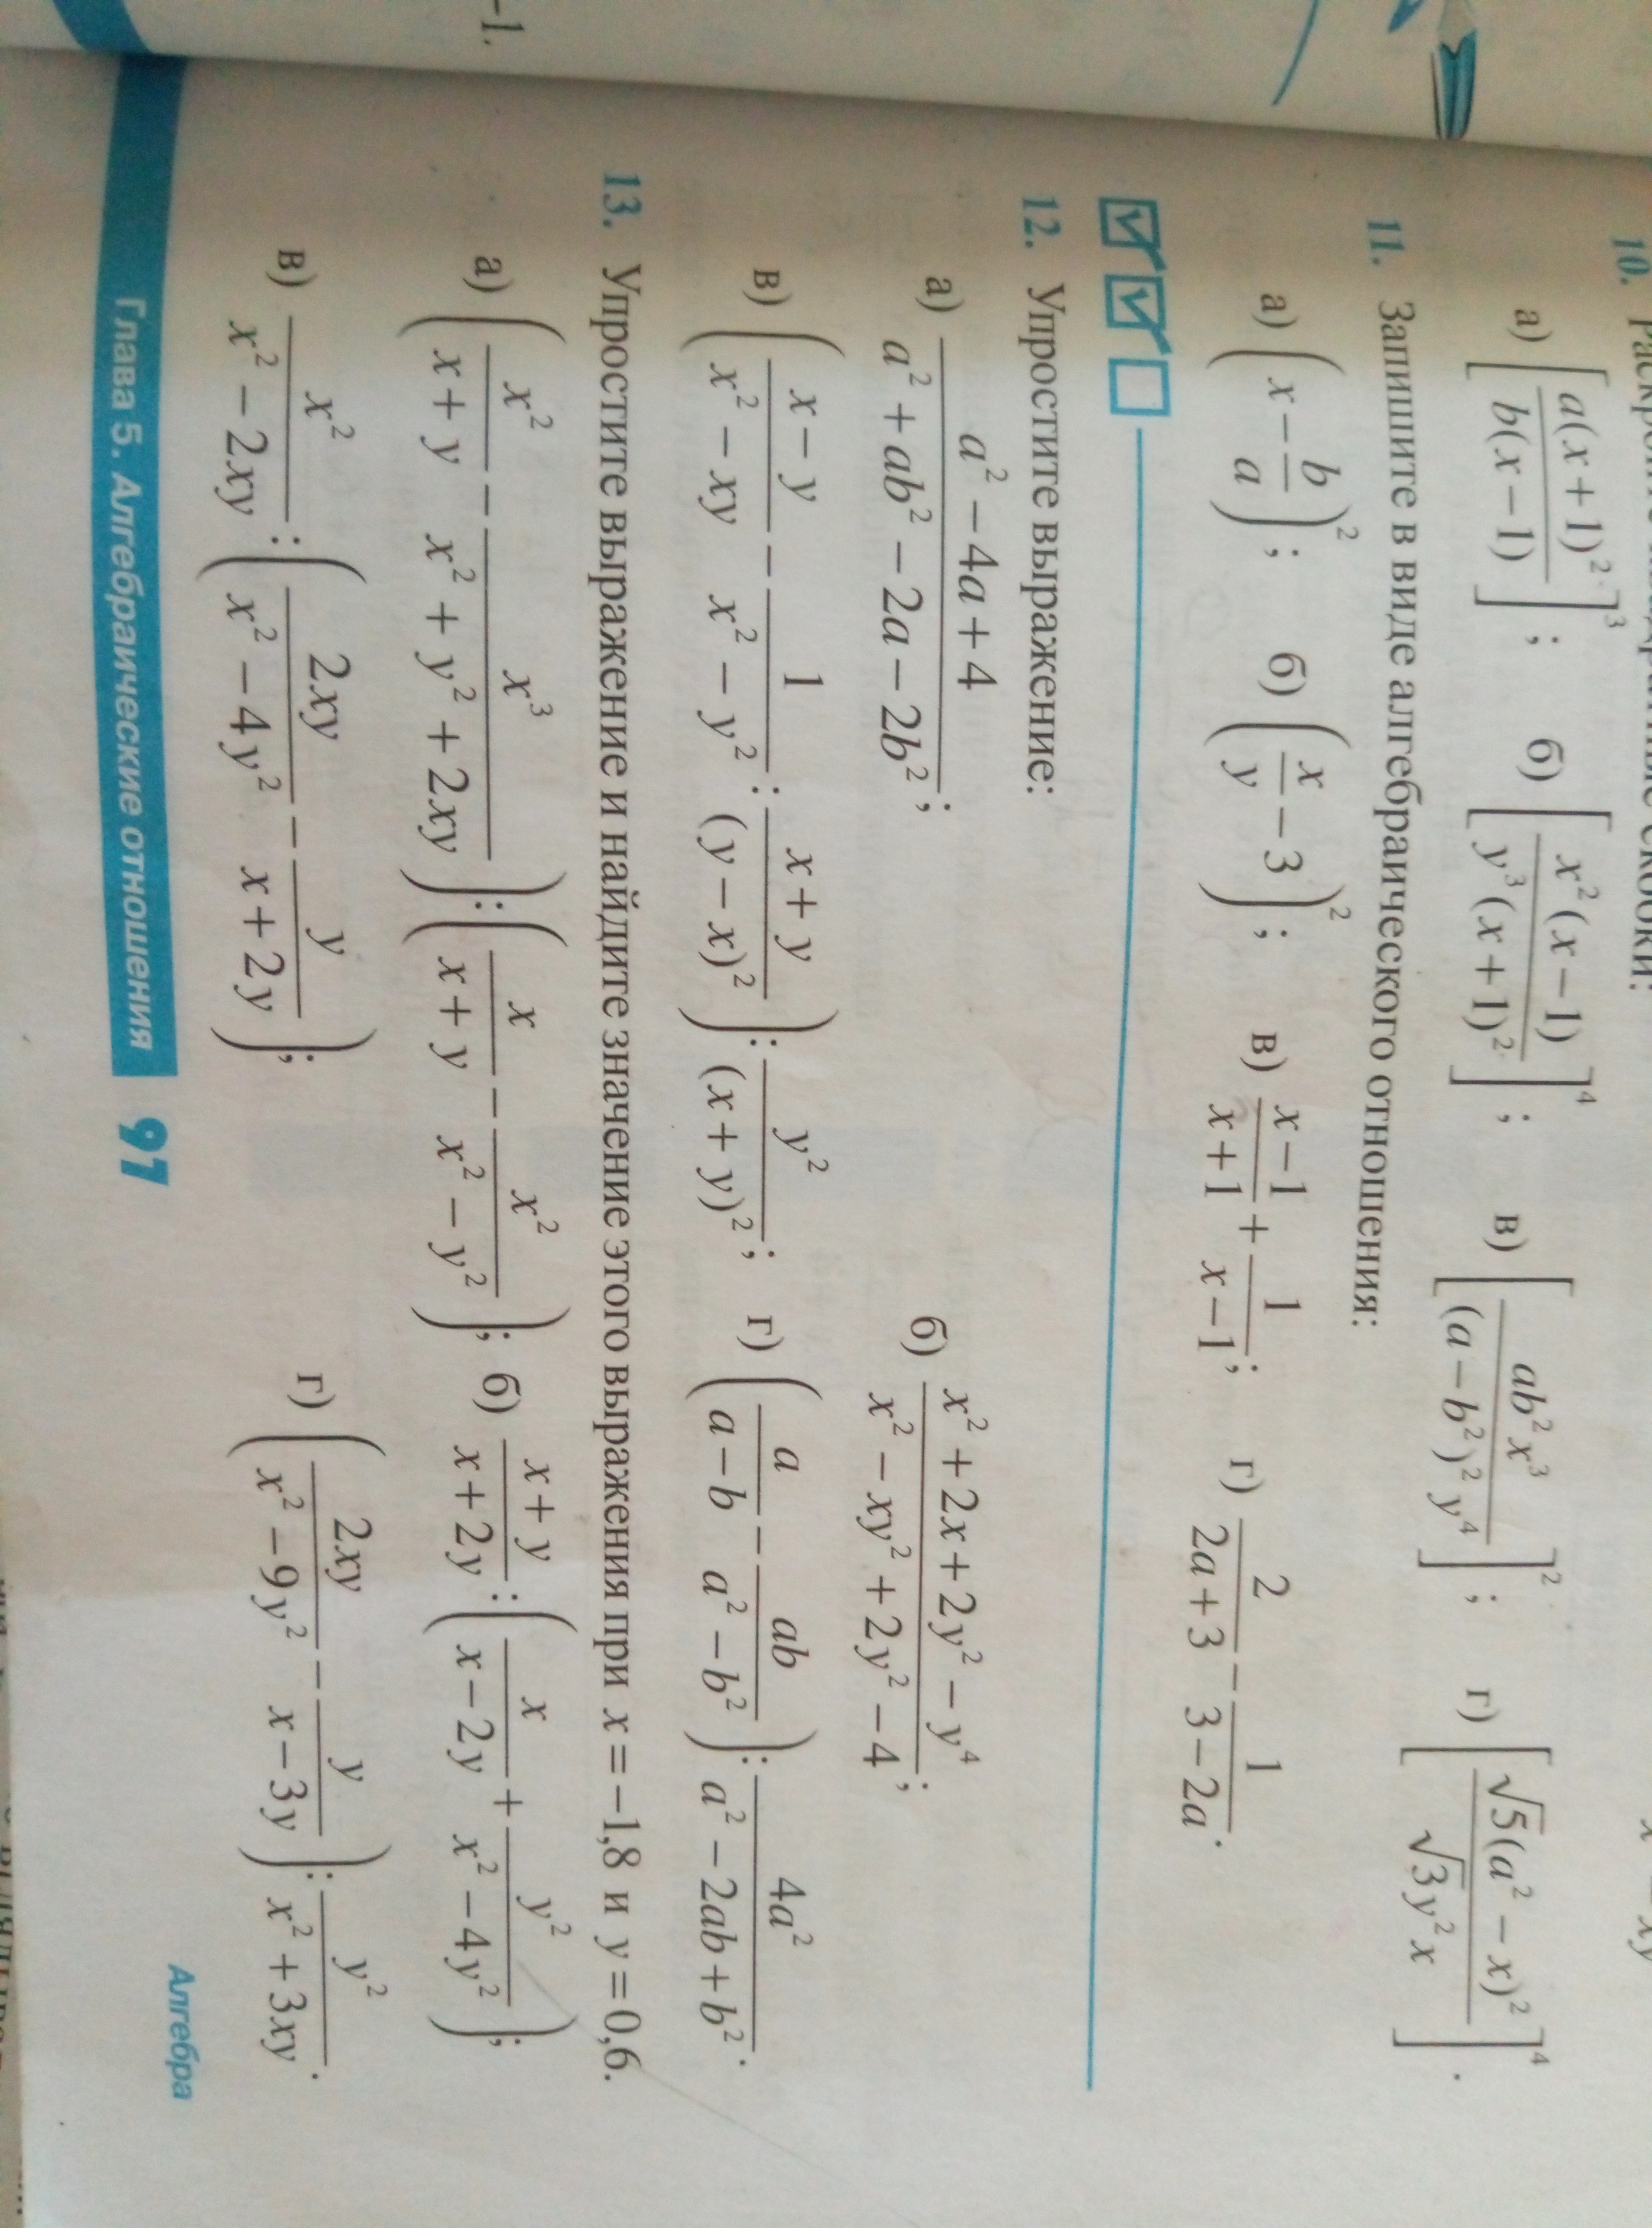 10. Раскройте квадратные скобки:
а) [a(x+1)²/b(x−1)]³; б) [x²(x−1)/y³(x+1)²]⁴; в) [ab²x³/(a−b²)²y⁴]²; г) [√5(a²−x)²/√3y²x]⁴.
11. Запишите в виде алгебраического отношения:
а) (x−b/a)²; б) (x/y−3)²; в) x−1/x+1 + 1/x−1; г) 2/2a+3 − 1/3−2a.
12. Упростите выражение:
а) a²−4a+4/a²+ab²−2a−2b²; б) x²+2x+2y²−y⁴/x²−xy²+2y²−4;
в) (x−y/x²−xy − 1/x²−y² : x+y/(y−x)²) : y²/(x+y)²; г) (a/a−b − ab/a²−b²) : 4a²/a²−2ab+b².
13. Упростите выражение и найдите значение этого выражения при x=−1,8 и y=0,6.
а) (x²/x+y − x³/x²+y²+2xy) : (x/x+y − x²/x²−y²); б) x+y/x+2y : (x/x−2y + y²/x²−4y²);
в) x²/x²−2xy : (2xy/x²−4y² − y/x+2y); г) (2xy/x²−9y² − y/x−3y) : y²/x²+3xy.
Алгебра
Глава 5. Алгебраические отношения 97
−1.